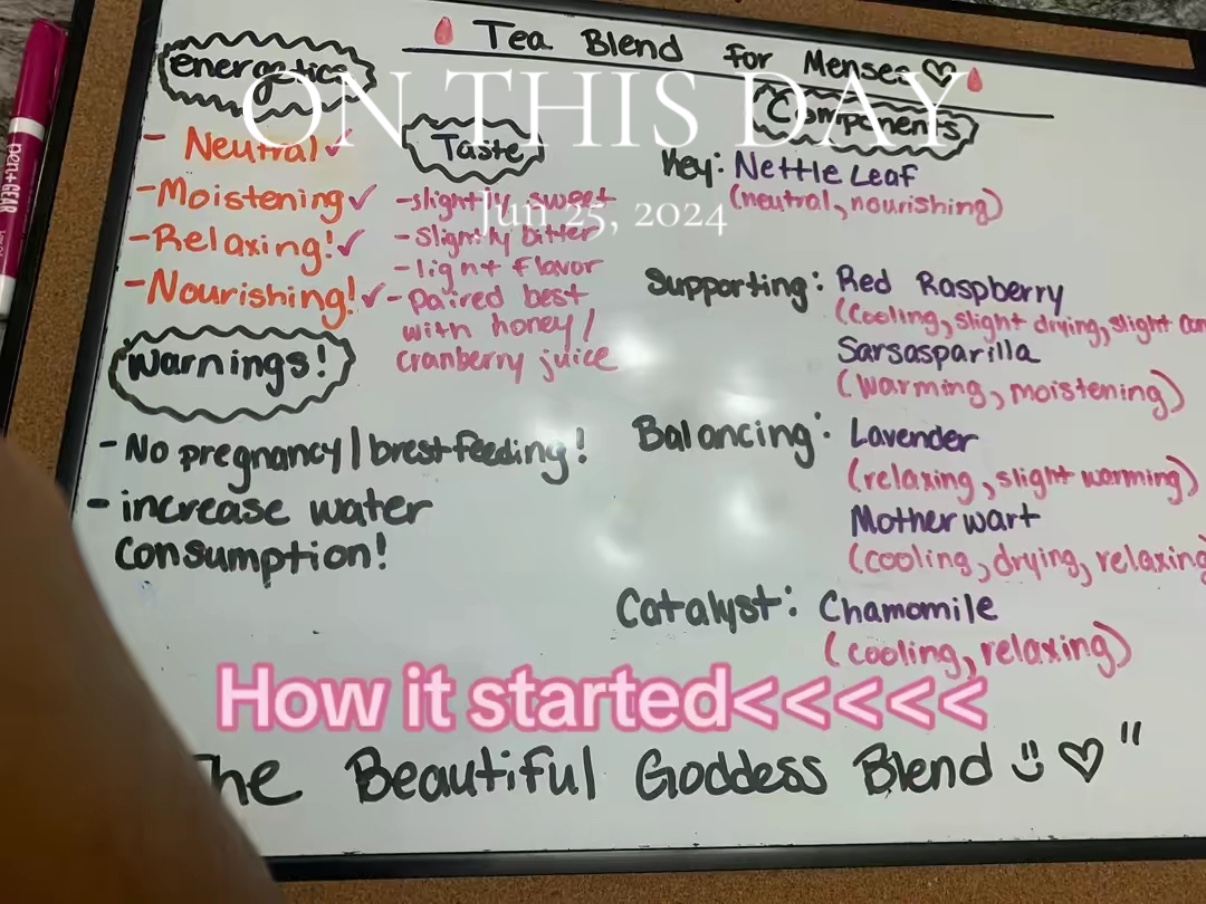 Tea Blend For Menses
energetics
- Neutral ✓
- Moistening ✓
- Relaxing! ✓
- Nourishing! ✓
Taste
- slightly sweet
- slightly bitter
- light flavor
- paired best
with honey /
cranberry juice
Warnings!
- No pregnancy / brestfeeding!
- increase water
consumption!
Components
Key: Nettle Leaf
(neutral, nourishing)
Supporting: Red Raspberry
(cooling, slight drying, slight
Sarsasparilla
(warming, moistening)
Balancing: Lavender
(relaxing, slight warming)
Motherwart
(cooling, drying, relaxing
Catalyst: Chamomile
(cooling, relaxing)
he Beautiful Goddess Blend "
ON THIS DAY
Jun 25, 2024
How it started<<<<<
pen+GEAR